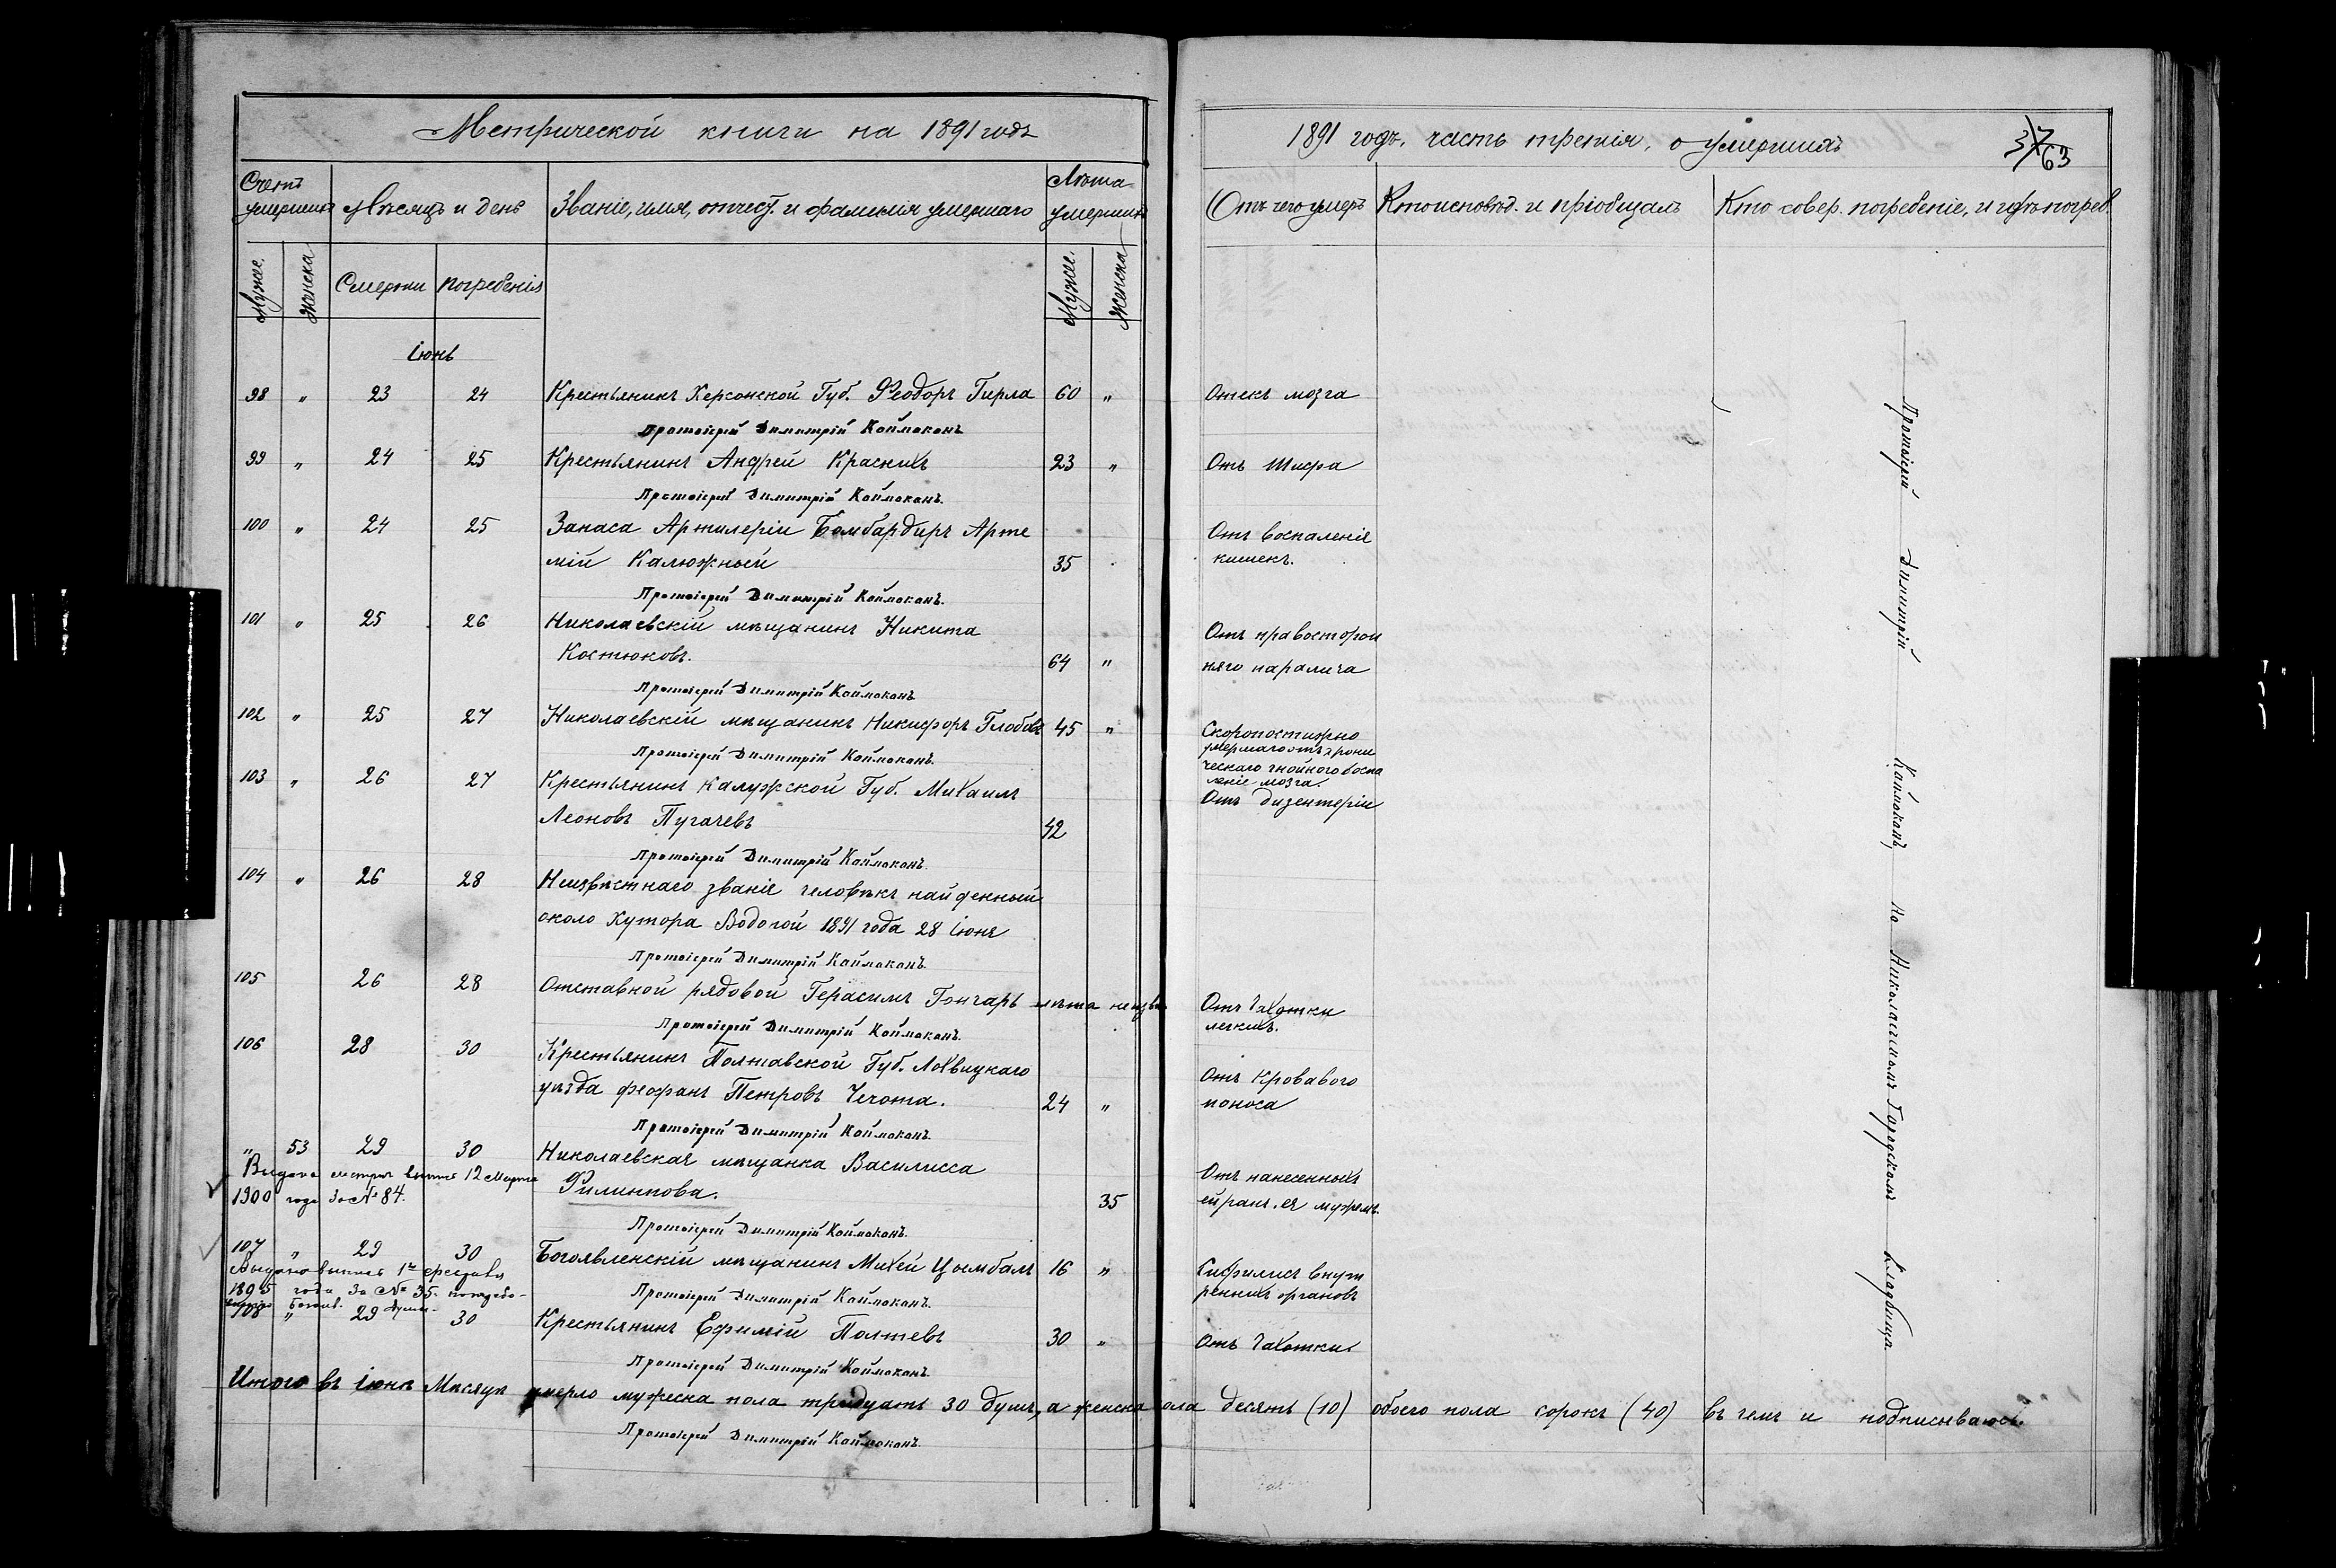 Метрической книги на 1891 годъ
Счетъ умершихъ
Мѣсяцъ и день
Званіе, имя, отчест. и фамилія умершаго
Лѣта умершихъ
Мужес.
Женска
Смерти
Погребенія
Мужес.
Женска
Іюнь
98 " 23 24 Крестьянинъ Херсонской Губ. Феодоръ Гирла 60 "
Протоіерей Димитрій Каймаканъ
99 " 24 25 Крестьянинъ Андрей Краснихъ 23 "
Протоіерей Димитрій Каймаканъ.
100 " 24 25 Запаса Артилеріи Бомбардиръ Арте
мій Калюжный 35
Протоіерей Димитрій Каймаканъ.
101 " 25 26 Николаевскій мѣщанинъ Никита
Костюковъ. 64 "
Протоіерей Димитрій Каймаканъ
102 " 25 27 Николаевскій мѣщанинъ Никифоръ Глобовъ 45 "
Протоіерей Димитрій Каймаканъ.
103 " 26 27 Крестьянинъ Калужской Губ. Михаилъ
Леоновъ Пугачевъ 42
Протоіерей Димитрій Каймаканъ.
104 " 26 28 Неизвѣстнаго званіе человѣкъ найденный
около Хутора Водогой 1891 года 28 Іюня
Протоіерей Димитрій Каймаканъ.
105 26 28 Отставной рядовой Герасимъ Гончаръ лѣта неизвѣ
Протоіерей Димитрій Каймаканъ.
106 28 30 Крестьянинъ Полтавской Губ. Лохвицкаго
уѣзда Феофанъ Петровъ Чечота. 24 "
Протоіерей Димитрій Каймаканъ.
" 53 29 30 Николаевская мѣщанка Василисса
Выдана метрич выпись 12 Марта
1900 года За № 84.
Филиппова. 35
Протоіерей Димитрій Каймаканъ.
107 " 29 30 Богоявленскій мѣщанинъ Михей Цымбалъ 16 "
Выдана выпись 1го
1895 года За № 35.
Протоіерей Димитрій Каймаканъ.
108 " 29 30 Крестьянинъ Ефимій Полтевъ 30 "
Протоіерей Димитрій Каймаканъ.
Итого въ Іюнѣ Мѣсяцѣ умерло мужеска пола тридцать 30 душъ, а женска пола десять (10) обоего пола сорокъ (40) въ чемъ и подписываюсь.
Протоіерей Димитрій Каймаканъ.
1891 годъ, часть третія, о умершихъ
37
63
Отъ чего умеръ
Кто исповѣд. и пріобщалъ
Кто совер. погребеніе, и гдѣ погреб.
Отекъ мозга
Отъ Тифа
Отъ воспаленіе
кишекъ.
Отъ правосторон
няго паралича
Скоропостижно
умершаго отъ хрони
ческаго гнойного воспа
леніе мозга.
Отъ дизентеріи
Отъ Чахотки
легкихъ.
Отъ Кровавого
поноса
Отъ нанесенныхъ
ей ранъ ея мужемъ.
Сифилисъ внут
реннихъ органовъ
Отъ Чахотки
Протоіерей Димитрій Каймаканъ, На Николаевскомъ Городскомъ Кладбище.